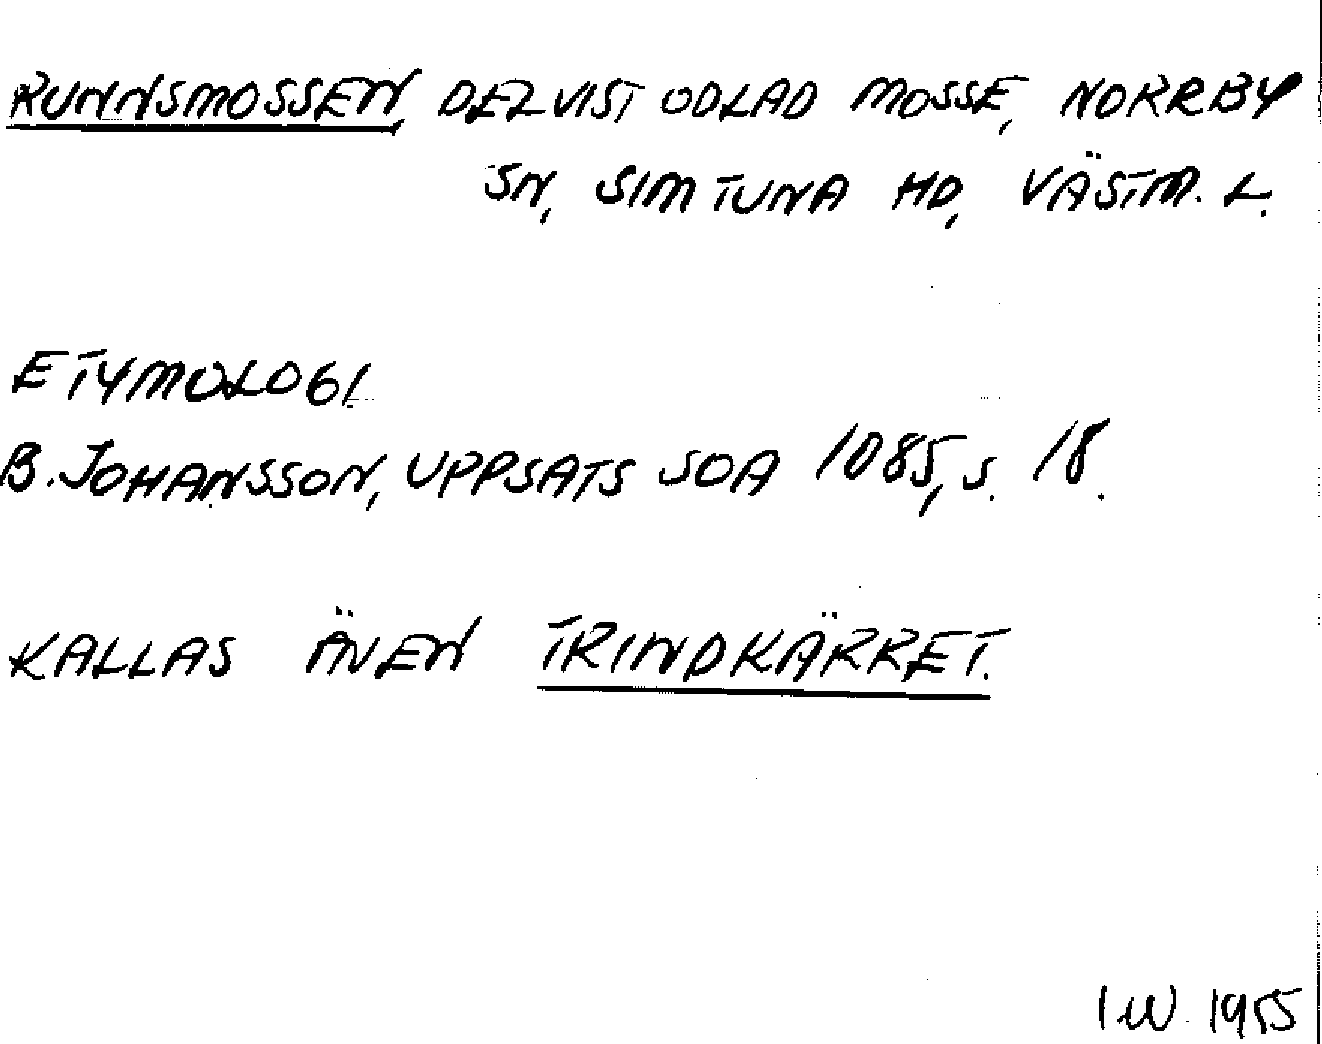 RUNNSMOSSEN, DELVIST ODLAD MOSSE, NORRBY
SN, SIMTUNA HD, VÄSTM. L.
ETYMOLOGI.
B. JOHANSSON, UPPSATS SOA 1085, S. 18.
KALLAS ÄVEN TRINDKÄRRET.
IW. 1955